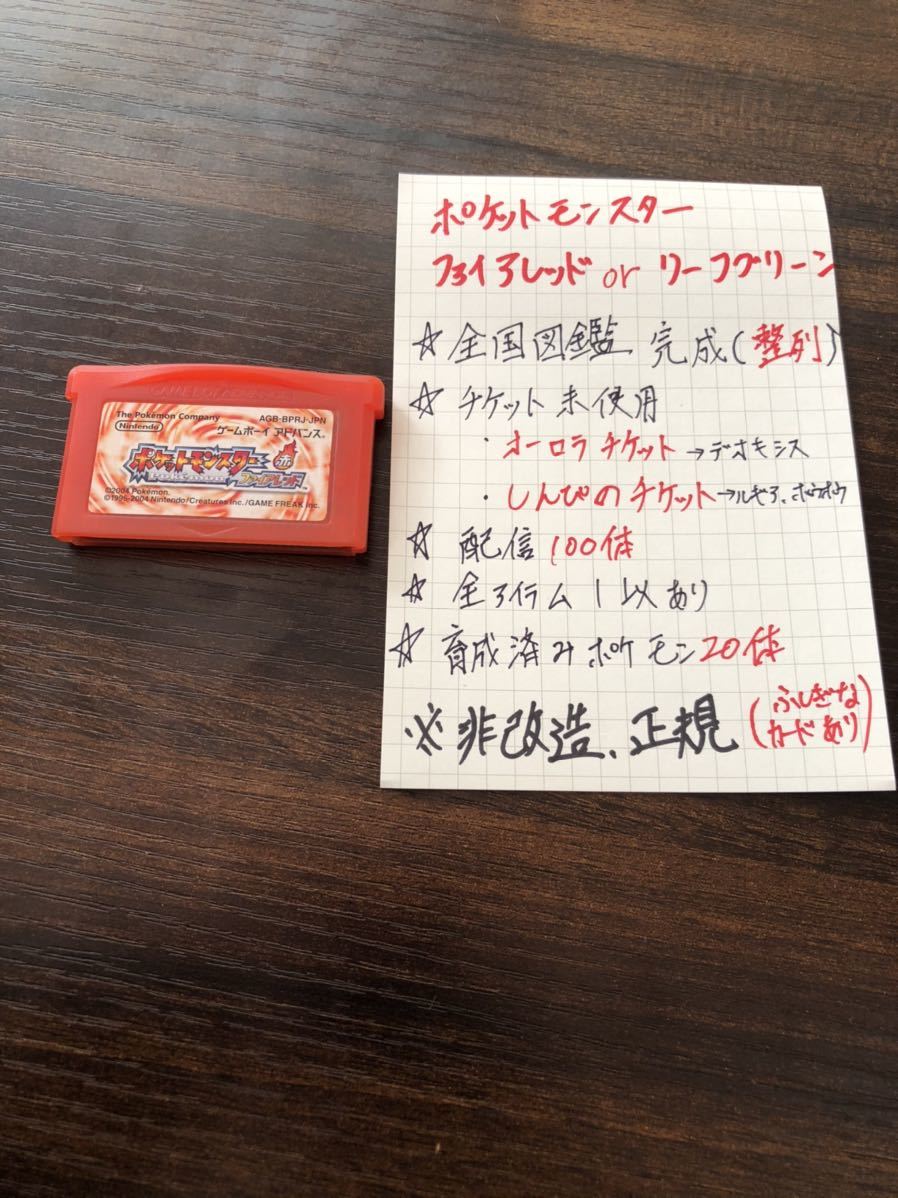 The Pokémon Company
Nintendo
AGB-BPRJ-JPN
ゲームボーイ アドバンス®
ポケットモンスター
赤
POKéMON
ファイアレッド
©2004 Pokémon.
©1995-2004 Nintendo/Creatures inc./GAME FREAK inc.
ポケットモンスター
ファイアレッド or リーフグリーン
☆ 全国図鑑 完成(整列)
☆ チケット未使用
・オーロラチケット→デオキシス
・しんぴのチケット→ルギア、ホウオウ
☆ 配信 100体
☆ 全アイテム 1以あり
☆ 育成済みポケモン20体
※非改造、正規 (ふしぎな
カードあり)